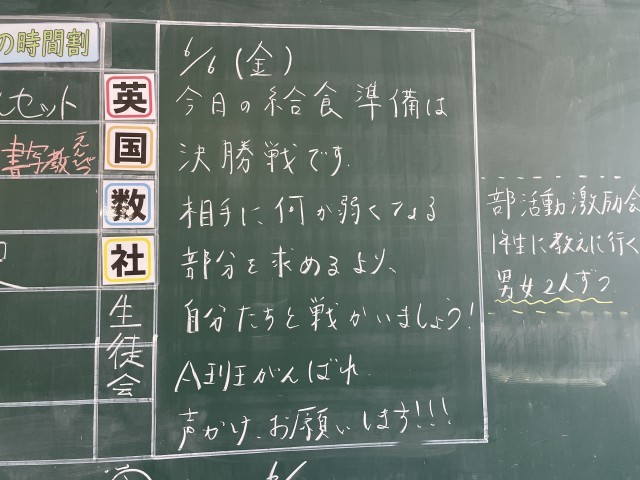 の時間割
セット
英
書写教
えんぴつ
国
数
社
生徒会
6/6(金)
今日の給食準備は
決勝戦です.
相手に何か弱くなる
部分を求めるより、
自分たちと戦かいましょう!
A班がんばれ.
声かけ、お願いします!!!
部活動激励会
1年生に教えに行く
男女2人ずつ.